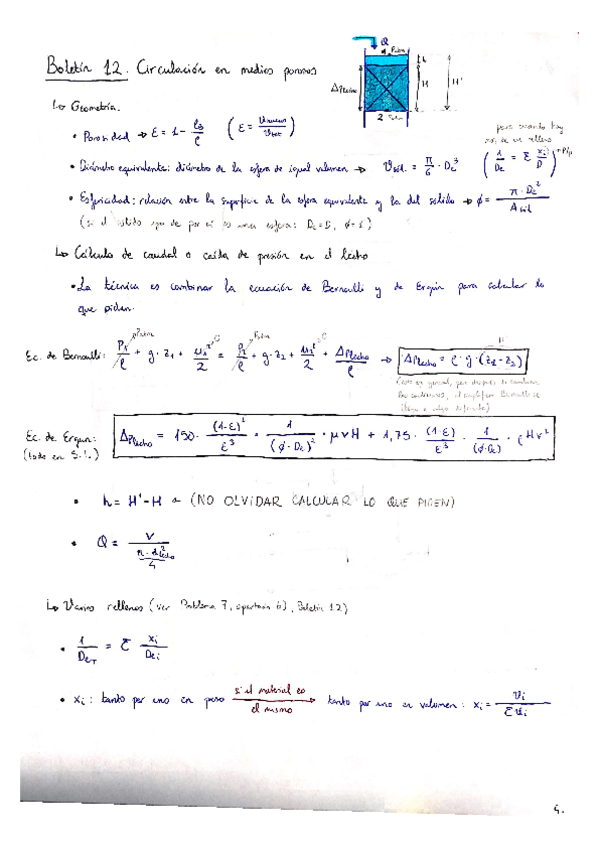 Boletín 12. Circulación en medios porosos
Q
Patm
h
H
H'
ΔPlecho
2
↳ Geometría.
• Porosidad → ε = 1 - ρB/ρ (ε = Vhuecos/Vtot)
para cuando hay más de un relleno
(1/De = Σ xi/D)
• Diámetro equivalente: diámetro de la esfera de igual volumen → Vsól. = π/6 · De³
• Esfericidad: relación entre la superficie de la esfera equivalente y la del sólido → ϕ = π·De²/Asól
(si el sólido ya de por sí es una esfera: De=D, ϕ=1)
↳ Cálculo de caudal o caída de presión en el lecho
• La técnica es combinar la ecuación de Bernoulli y de Ergun para calcular lo
que piden.
Patm Patm
Ec. de Bernoulli: P1/ρ + g·z1 + u1²/2 = P2/ρ + g·z2 + u2²/2 + ΔPlecho/ρ → ΔPlecho = ρ·g·(z1-z2)
Ec. de Ergun: ΔPlecho = 150 · (1-ε)²/ε³ · 1/(ϕ·De)² · μvH + 1,75 · (1-ε)/ε³ · 1/(ϕ·De) · ρHv²
(todo en S.I.)
• h = H'-H (NO OLVIDAR CALCULAR LO QUE PIDEN)
• Q = v/(π·dlecho²/4)
↳ Varios rellenos (ver Problema 7, apartado b), Boletín 12)
• 1/DeT = Σ xi/Dei
• xi: tanto por uno en peso si el material es el mismo → tanto por uno en volumen: xi = vi/Σvi
4.